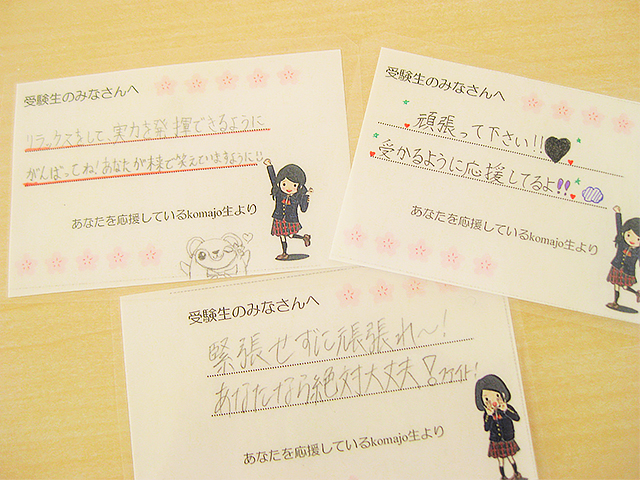 受験生のみなさんへ
リラックスをして、実力を発揮できるように
がんばってね!あなたが来年で笑えていますように!!
あなたを応援しているkomajo生より
受験生のみなさんへ
頑張って下さい!!
受かるように応援してるよ!!
あなたを応援しているkomajo生より
受験生のみなさんへ
緊張せずに頑張れ〜!
あなたなら絶対大丈夫!ファイト!
あなたを応援しているkomajo生より